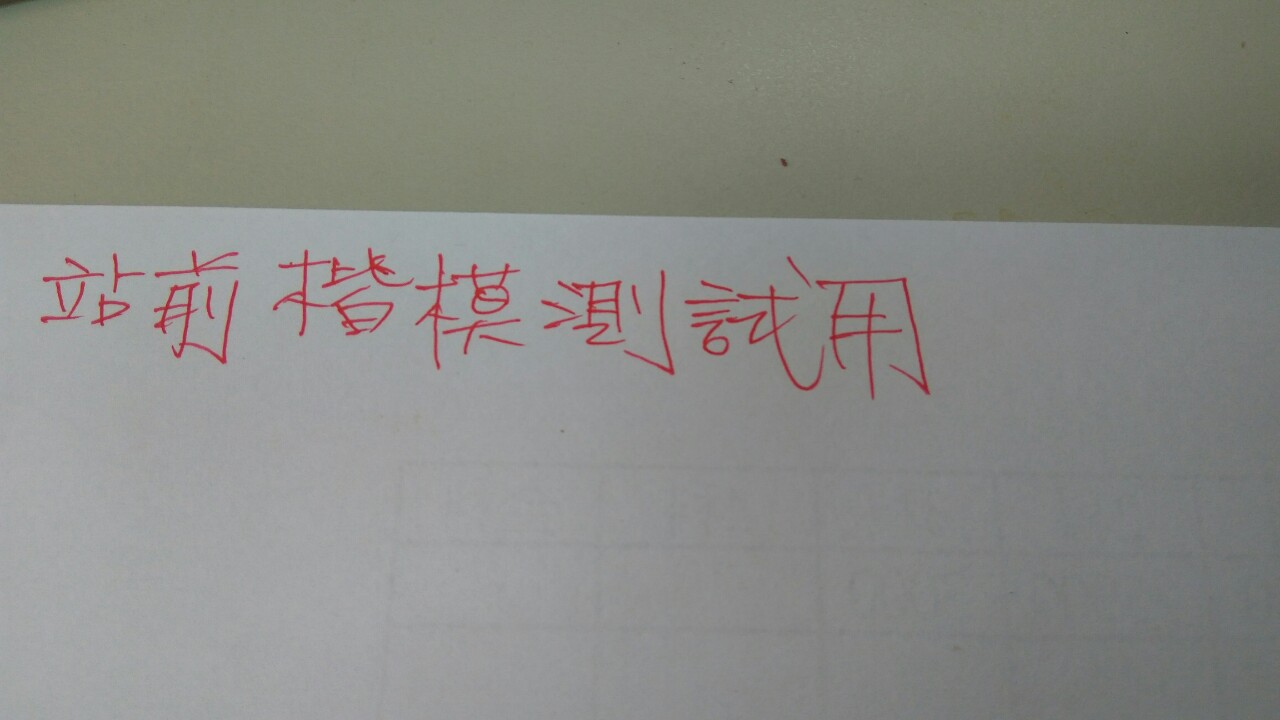 站前楷模測試用